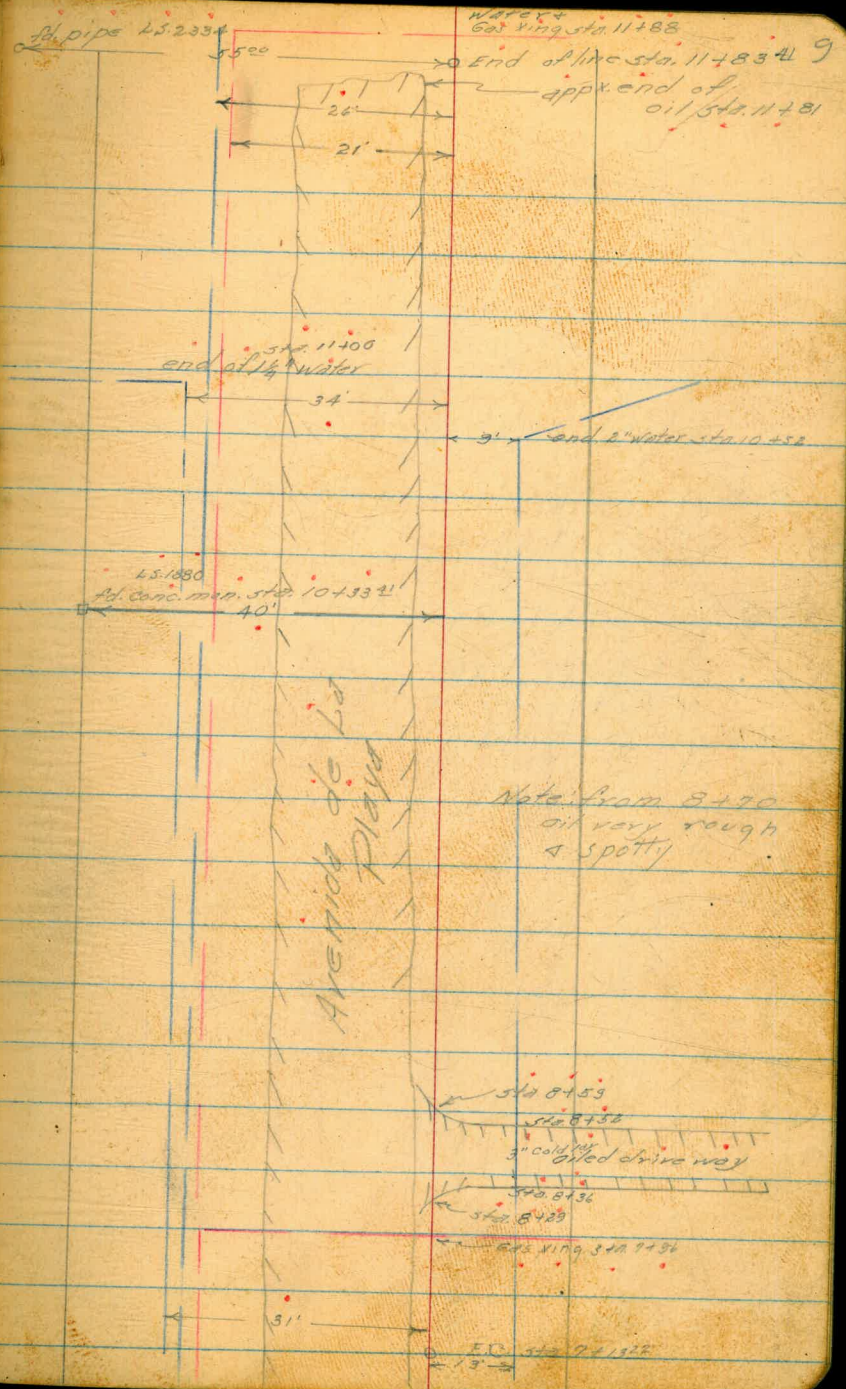 Water &
Gas xing sta. 11+88
9
fd. pipe LS. 2334
55.00
End of line sta. 11+83 41
appx. end of
oil sta. 11+81
26'
21'
sta. 11+00
end of 1¼" Water
34'
9'
end 2" Water sta. 10+52
LS. 1880
fd. conc. mon. sta. 10+33 41
40'
Avenida de La
Playa
Note: from 8+70
oil very rough
& spotty
sta 8+59
sta 8+56
3" Cold
oiled drive way
sta. 8+36
sta. 8+29
Gas xing sta. 7+96
31'
E.C. sta 7+13 22
13'